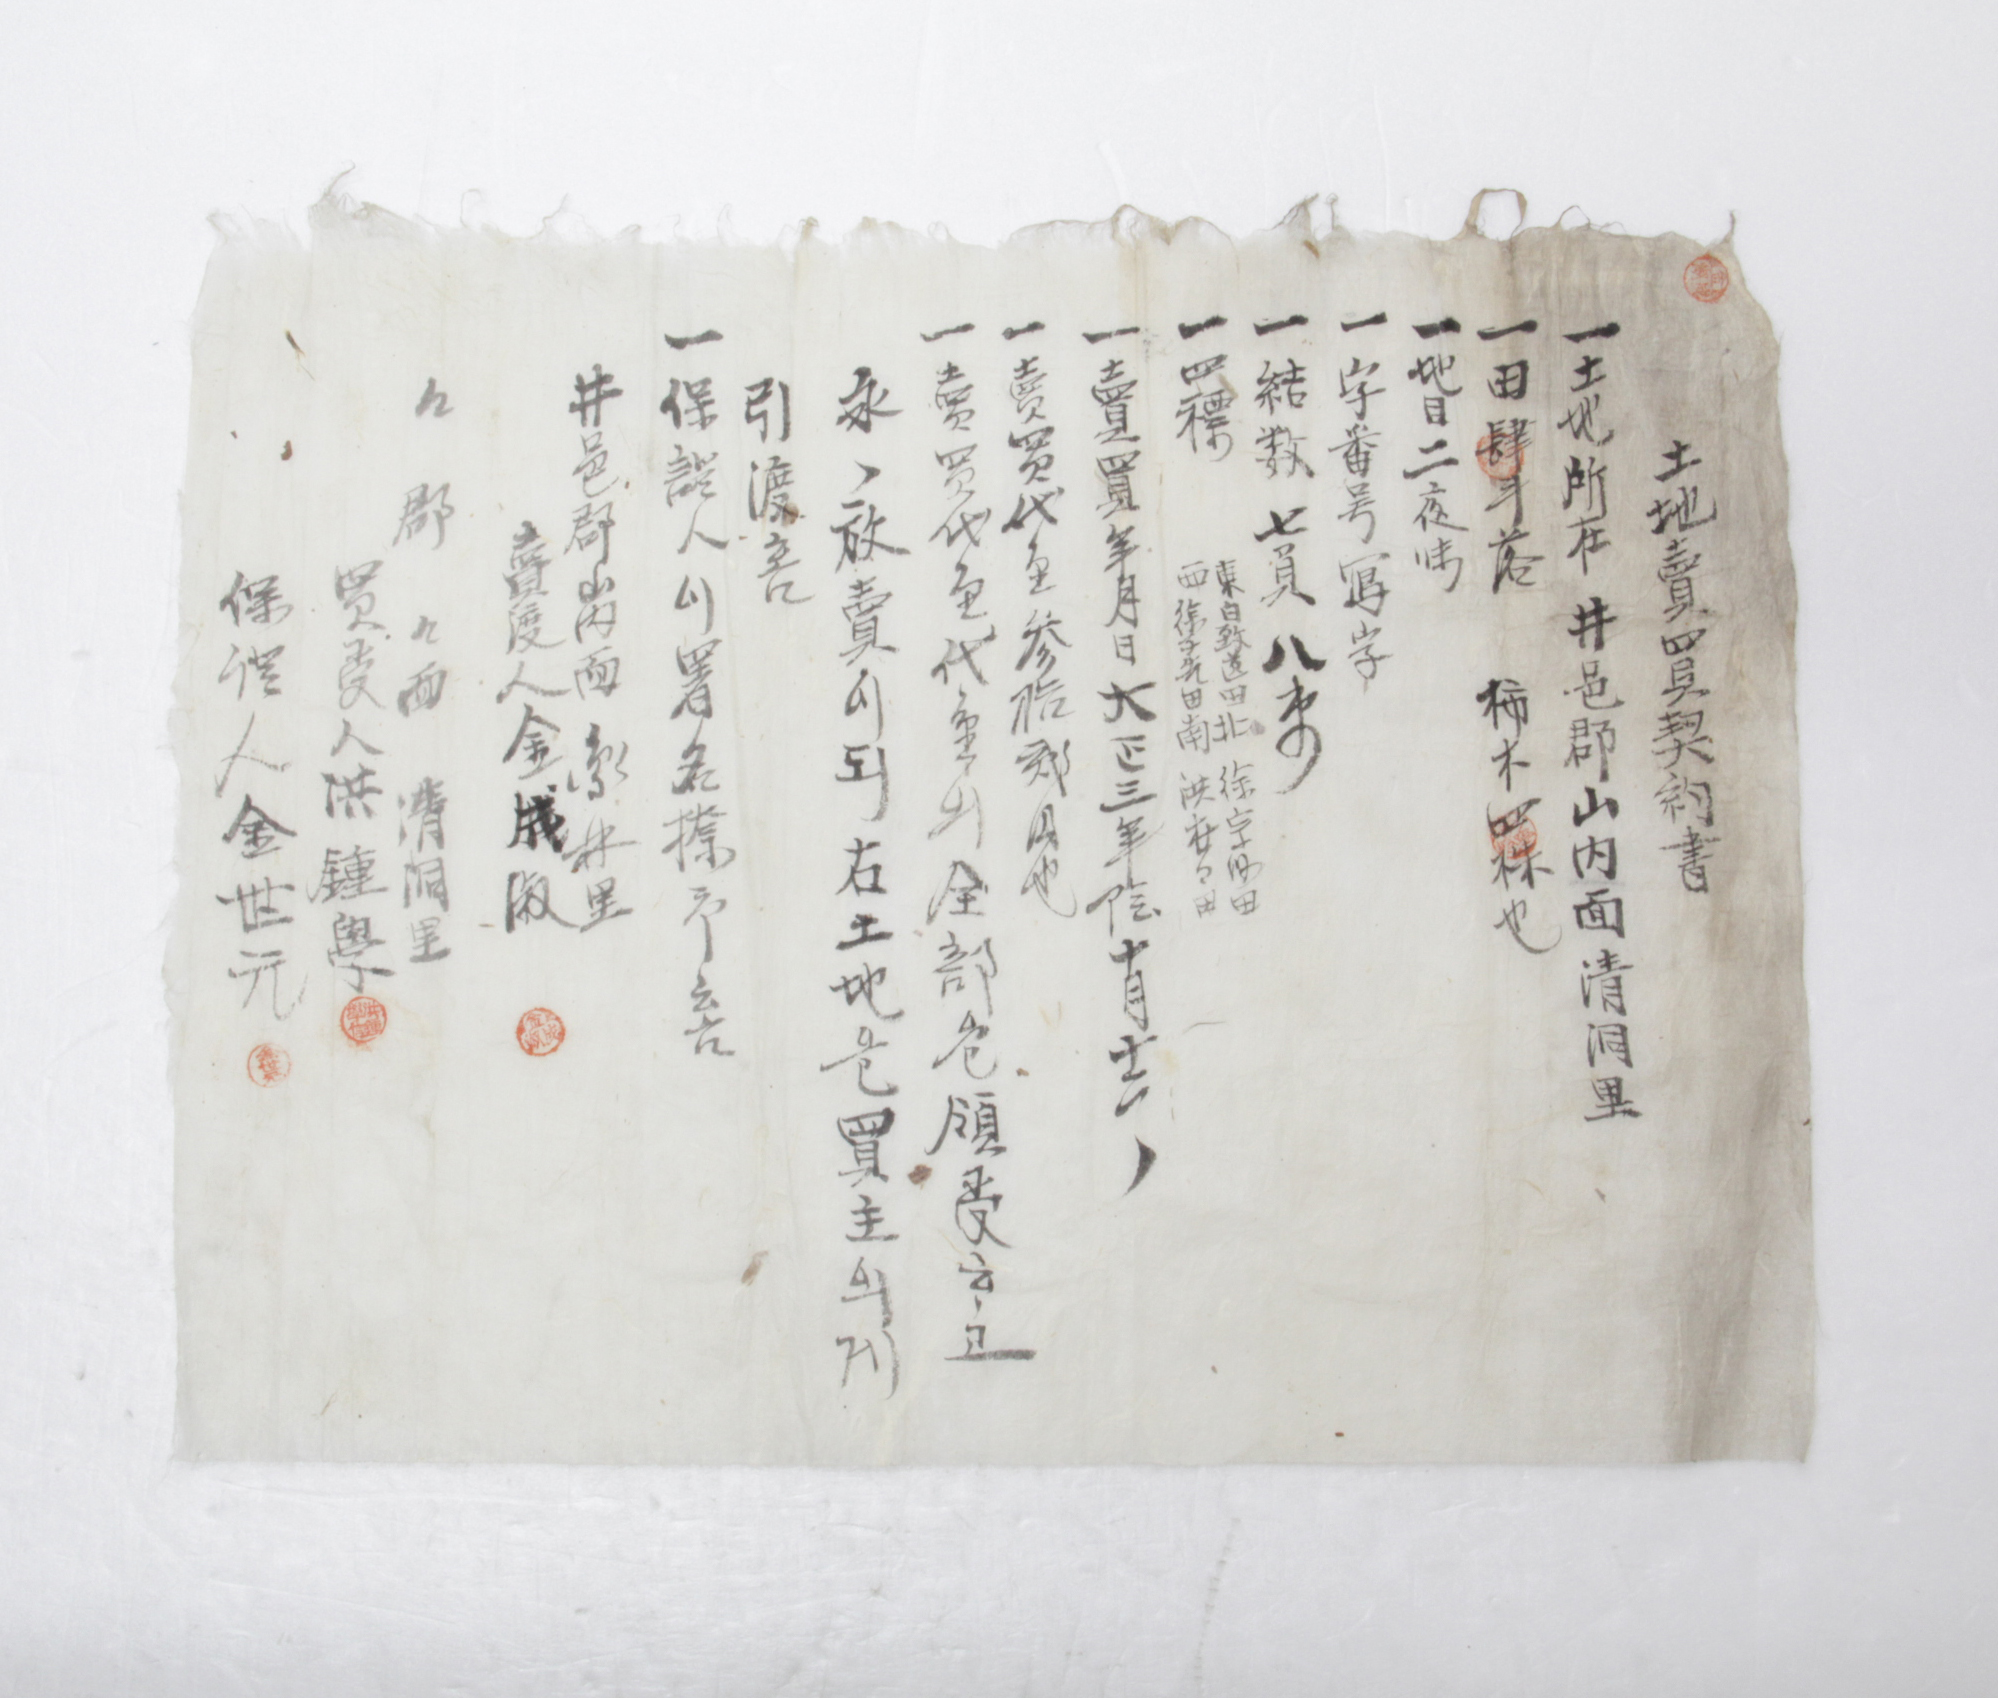 土地賣買契約書
一土地所在 井邑郡山內面清洞里
一田肆斗落 柿木四株也
一地目二夜味
一字番号寫字
一結数 七負八束
一四標
東白致道田北 徐字田
西徐田南 洪田
一賣買年月日大正三年陰十月
一賣買代金参拾圓也
一賣買代金代金의全部을領受하고
永々放賣이되右土地을買主의게
引渡홈
一保証人이署名捺印홈
井邑郡山內面 里
賣渡人金成淑
々郡 々面 清洞里
買受人洪鍾學
保証人金世元